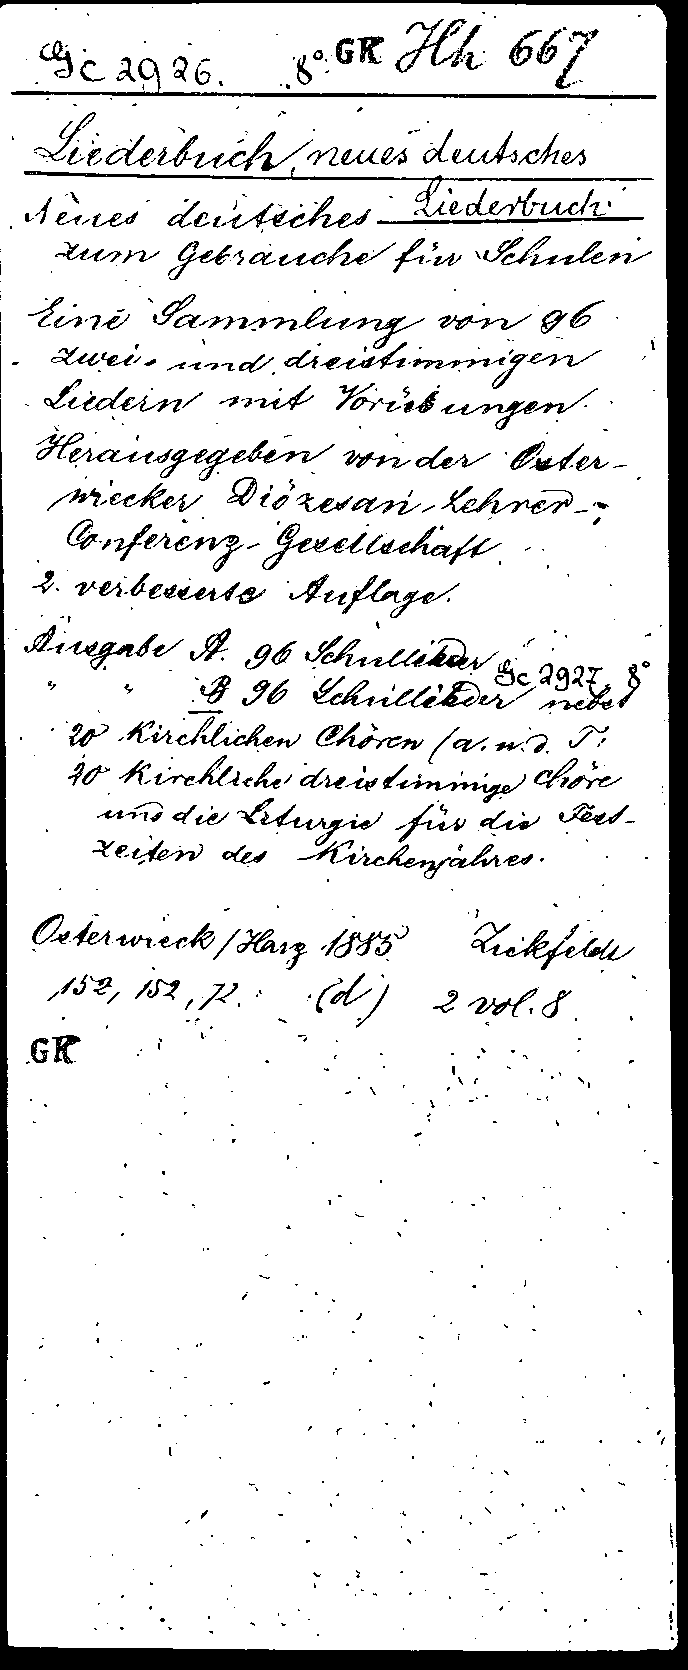 Gc 2926. 8° GK Hh 667
Liederbuch, neues deutsches
Neues deutsches Liederbuch
zum Gebrauche für Schulen
Eine Sammlung von 96
zwei- und dreistimmigen
Liedern mit Vorübungen.
Herausgegeben von der Oster-
wiecker Diözesan-Lehrer-
Conferenz-Gesellschaft
2. verbesserte Auflage.
Ausgabe A. 96 Schullieder
Gc 2927 8°
" " B 96 Schullieder nebst
20 Kirchlichen Chören (a. u. d. T:
20 Kirchliche dreistimmige Chöre
und die Liturgie für die Fest-
zeiten des Kirchenjahres.
Osterwieck/Harz 1885 Zickfeldt
152, 152, 72. (d) 2 vol. 8
GK